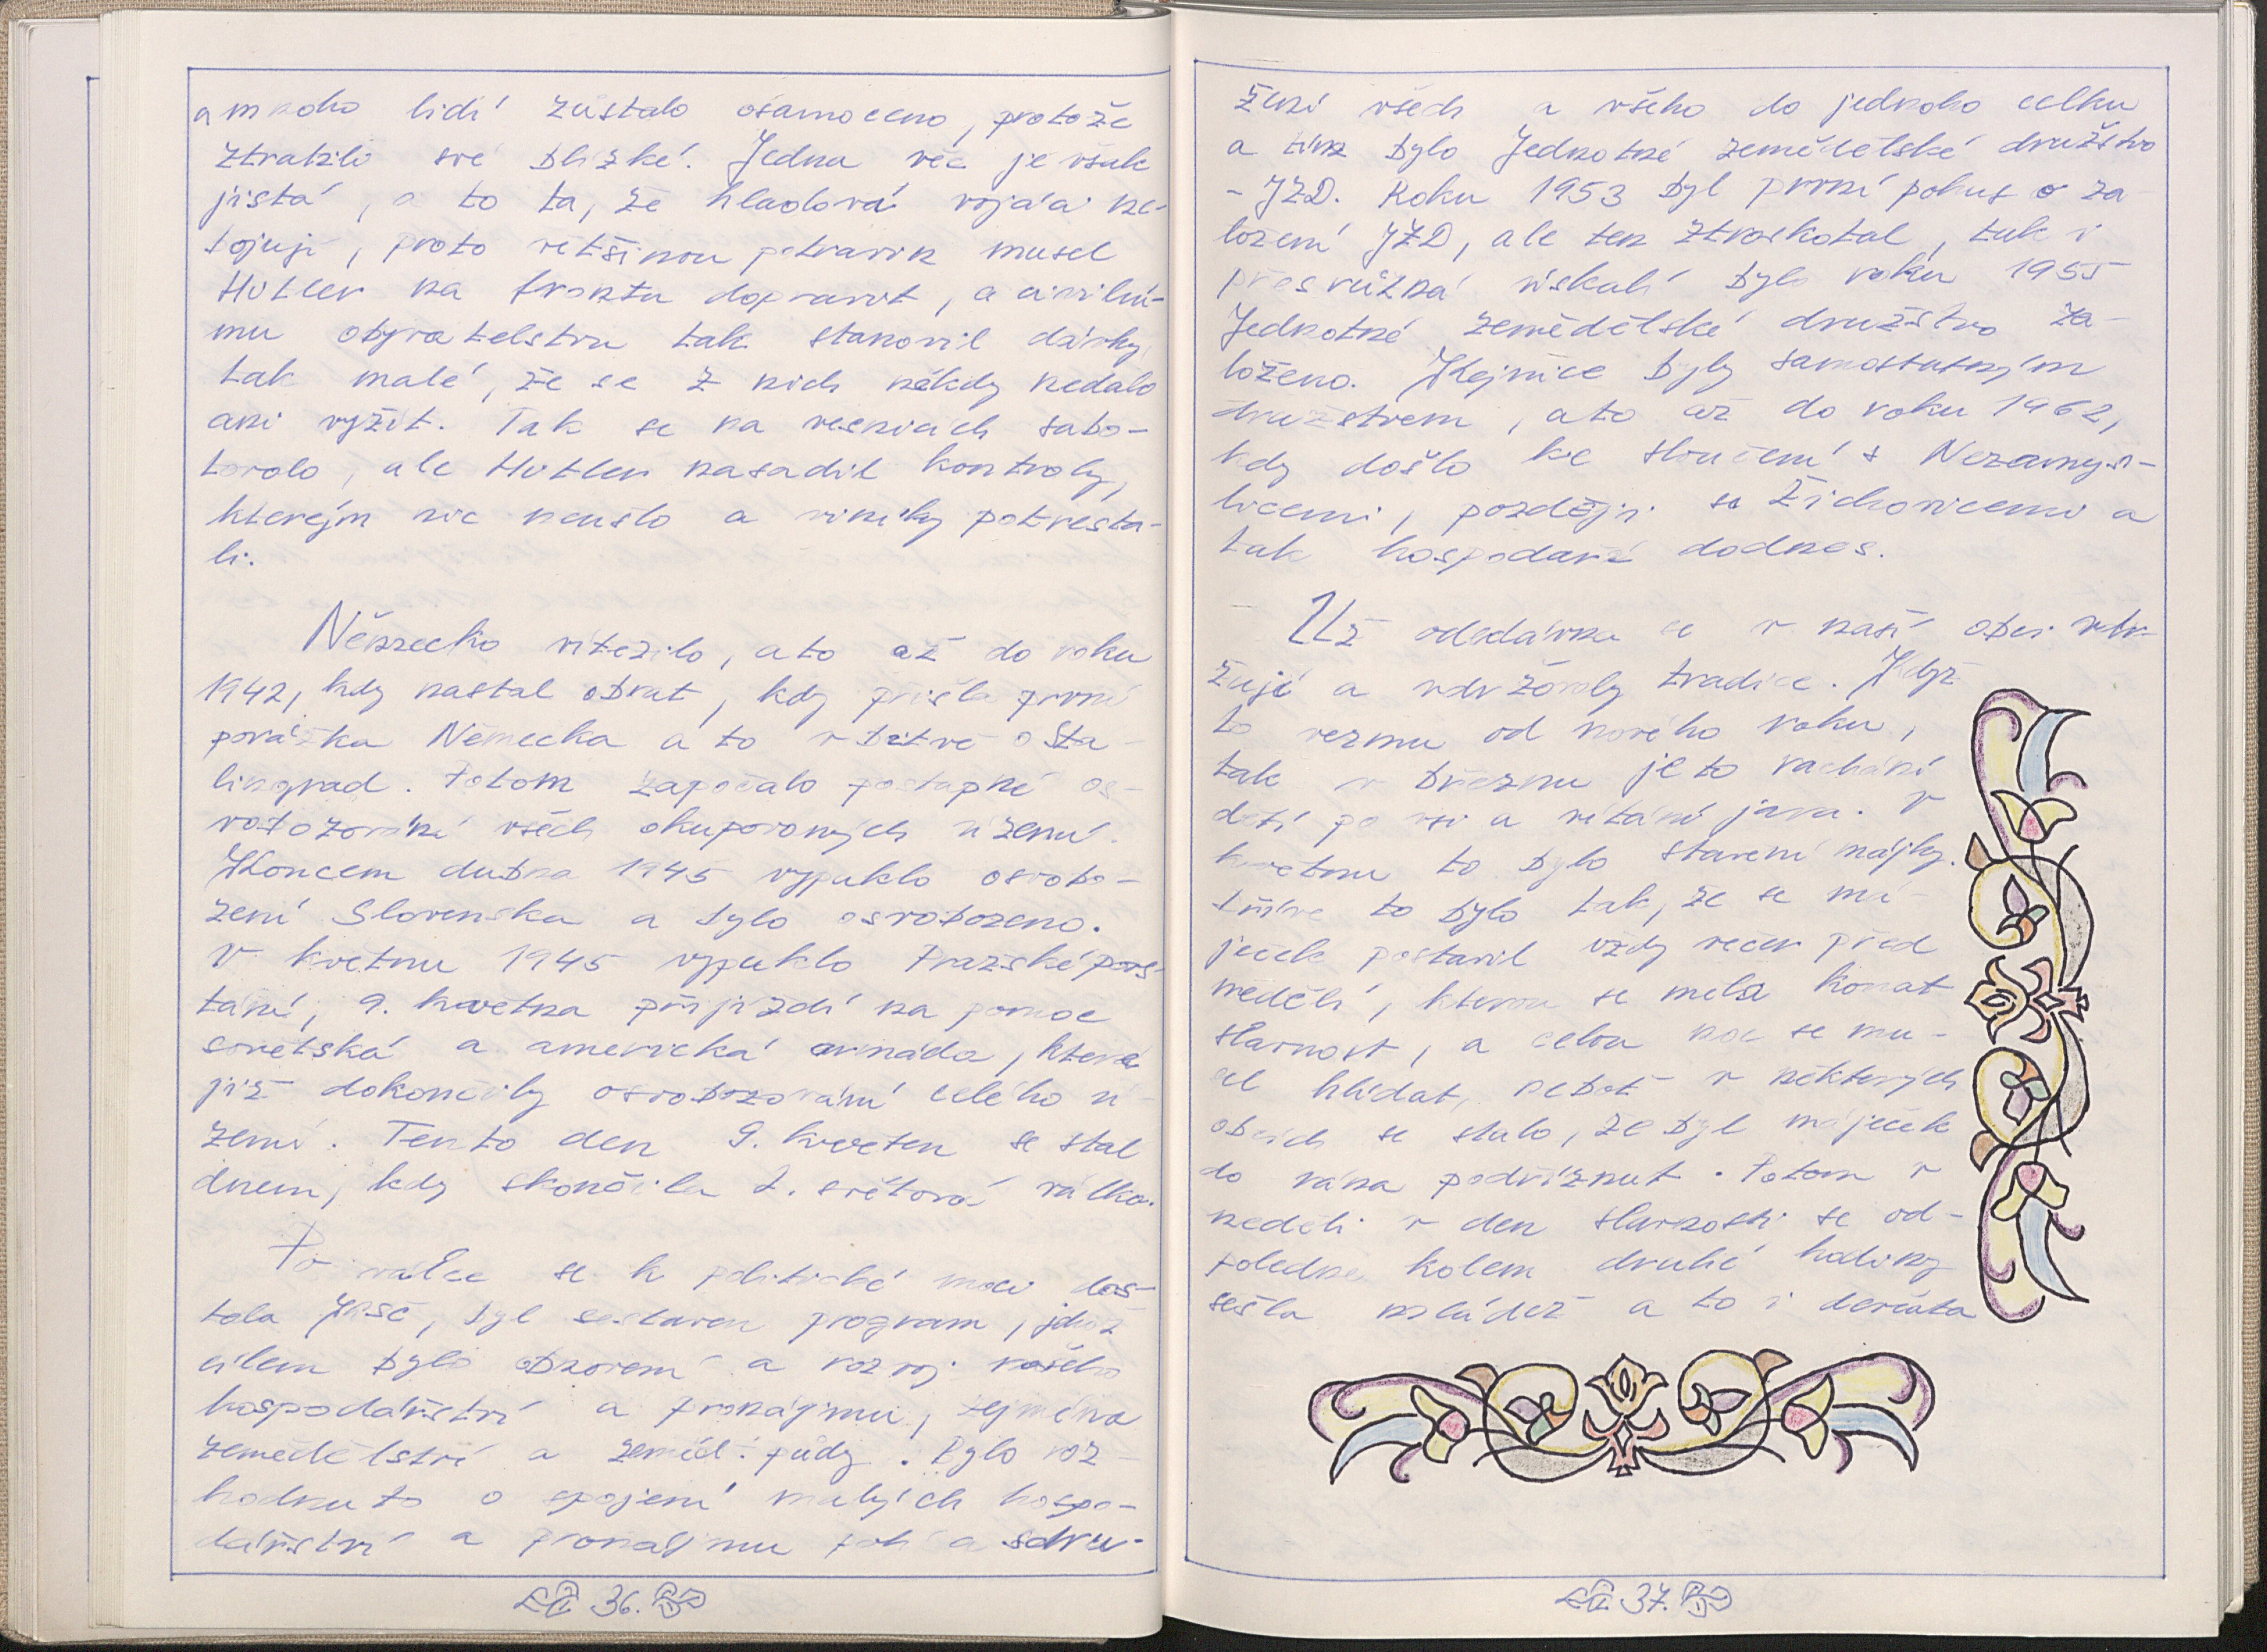 a mnoho lidí zůstalo osamoceno, protože
ztratili své blízké. Jedna věc je však
jistá, a to ta, že hladová vojáci ne-
bojují, proto většinou potravin musel
Hitler na frontu dopravit, a civilní-
mu obyvatelstvu tak stanovil dávky,
tak malé, že se z nich někdy nedalo
ani vyžít. Tak se na vesnicích sabo-
tovalo, ale Hitler nasadil kontroly,
kterejm nic neušlo a viníky potresta-
li.
Německo vítězilo, a to až do roku
1942, kdy nastal obrat, kdy přišla první
porážka Německa a to v bitvě o Sta-
lingrad. Potom započalo postupné os-
vobozování všech okupovaných území.
Koncem dubna 1945 vypuklo osvobo-
zení Slovenska a bylo osvobozeno.
V květnu 1945 vypuklo Pražské povs-
tání, 9. května přijíždí na pomoc
sovětská a americká armáda, které
již dokončily osvobozování celého ú-
zemí. Tento den 9. květen se stal
dnem, kdy skončila 2. světová válka.
Po válce se k politické moci dos-
tala KSČ, byl sestaven program, jehož
cílem bylo obnovení a rozvoj našeho
hospodářství a pronájmu, zejména
zemědělství a zeměd. půdy. Bylo roz-
hodnuto o spojení malých hospo-
dářství a pronájmu polí a sdru-
36.
žení všech a všeho do jednoho celku
a tím bylo Jednotné zemědělské družstvo
- JZD. Roku 1953 byl první pokus o za
ložení JZD, ale ten ztroskotal, tak i
přes různá úskalí bylo roku 1955
Jednotné zemědělské družstvo za-
loženo. Kejnice byly samostatným
družstvem, a to až do roku 1962,
kdy došlo ke sloučení s Nezamys-
licemi, později se Žichovicemi a
tak hospodaří dodnes.
Už odedávna se v naší obci udr-
žují a udržovaly tradice. Když
to vezmu od nového roku,
tak v březnu je to vachání
dětí po vsi a vítání jara. V
květnu to bylo stavení májky.
Dříve to bylo tak, že se má-
ječek postavil vždy večer před
nedělí, kterou se měla konat
slavnost, a celou noc se mu-
sel hlídat, neboť v některých
obcích se stalo, že byl máječek
do rána podříznut. Potom v
neděli v den slavnosti se od-
poledne kolem druhé hodiny
sešla mládež a to i děvčata
37.